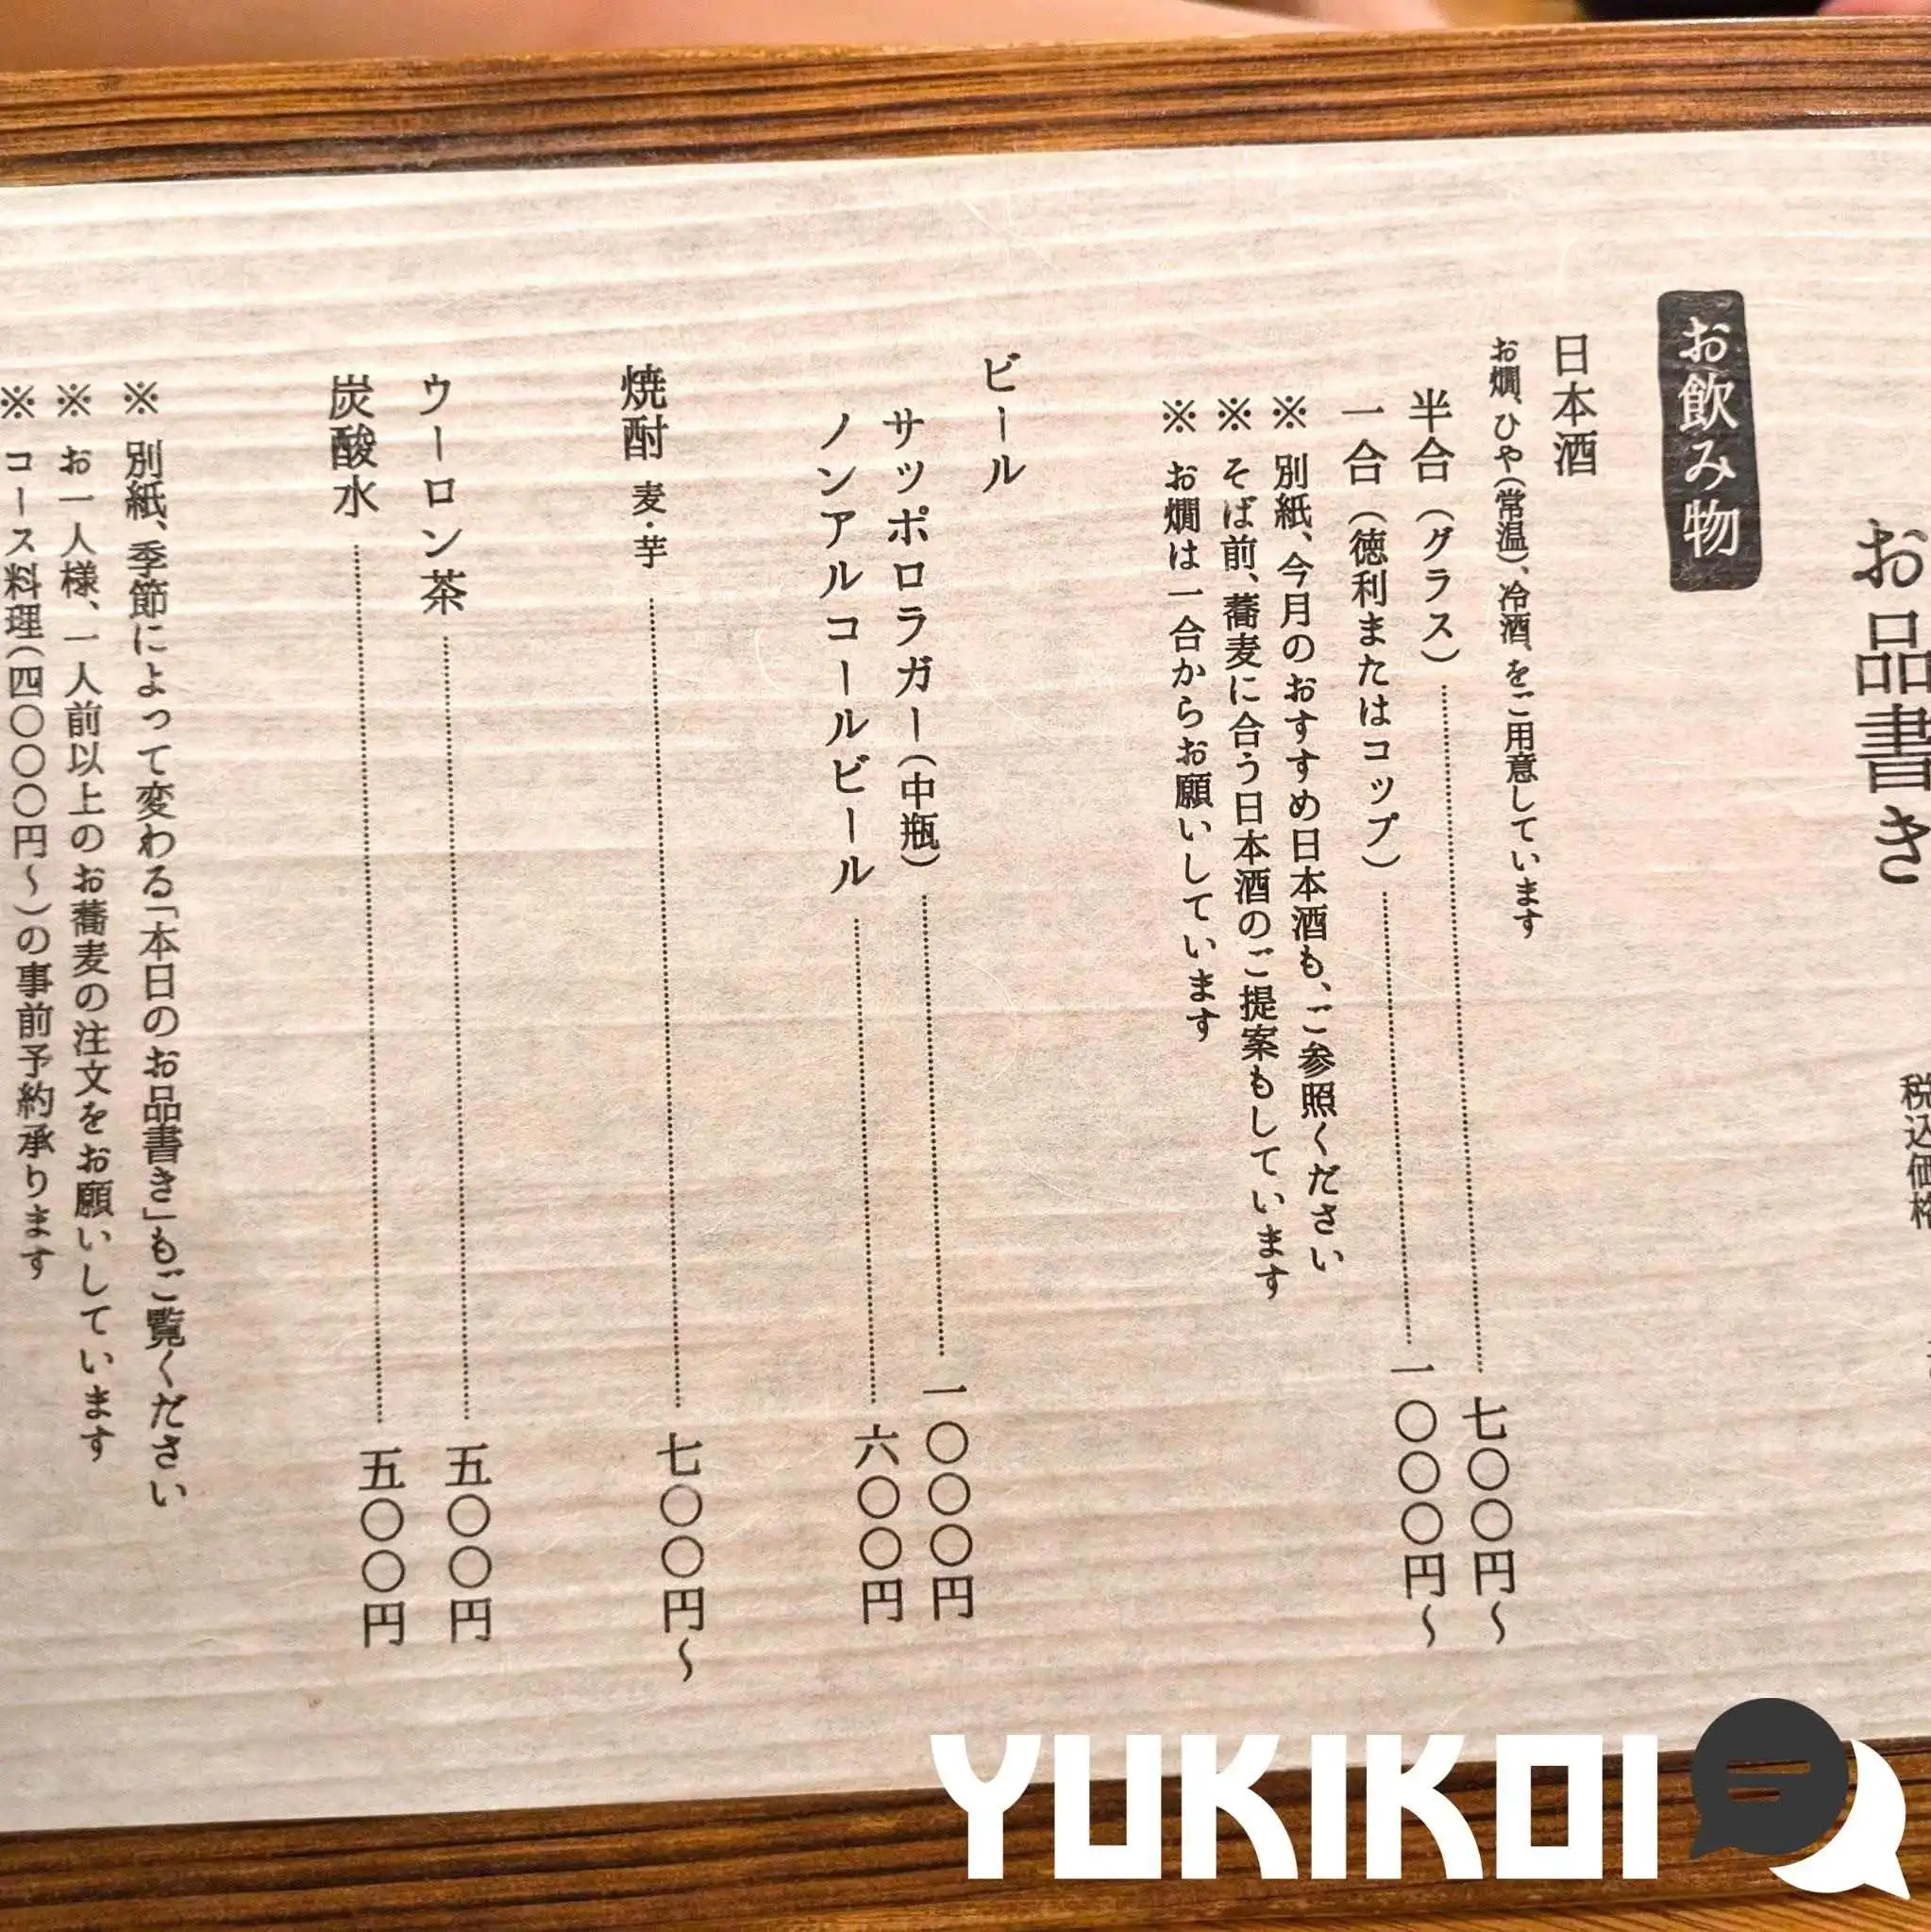 お品書き
税込価格
お飲み物
日本酒
お燗、ひや(常温)、冷酒、をご用意しています
半合(グラス) 七〇〇円〜
一合(徳利またはコップ) 一〇〇〇円〜
※ 別紙、今月のおすすめ日本酒も、ご参照ください
※ そば前、蕎麦に合う日本酒のご提案もしています
※ お燗は一合からお願いしています
ビール
サッポロラガー(中瓶) 一〇〇〇円
ノンアルコールビール 六〇〇円
焼酎 麦・芋 七〇〇円〜
ウーロン茶 五〇〇円
炭酸水 五〇〇円
※ 別紙、季節によって変わる「本日のお品書き」もご覧ください
※ お一人様、一人前以上のお蕎麦の注文をお願いしています
※ コース料理(四〇〇〇円〜)の事前予約承ります
YUKIKOI